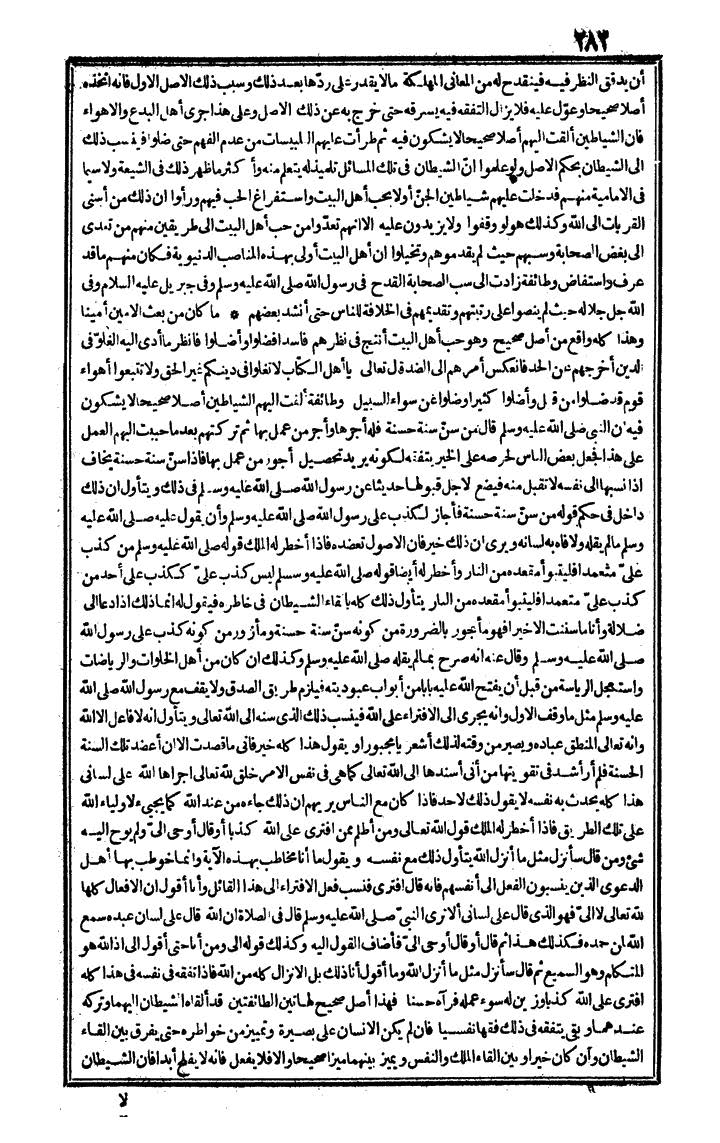 ٢٨٢
أن يدقق النظر فيه فينقدح له من المعاني المهلكة مالا يقدر على ردّها بعد ذلك وسبب ذلك الاصل الاول فانه اتخذه
أصلا صحيحا وعوّل عليه فلا يزال التفقه فيه يسرقه حتى خرج به عن ذلك الاصل وعلى هذا جرى أهل البدع والاهواء
فان الشياطين ألقت اليهم أصلا صحيحا لا يشكون فيه ثم طرأت عليهم التلبيسات من عدم الفهم حتى ضلوا فينسب ذلك
الى الشيطان بحكم الاصل ولو علموا انّ الشيطان في تلك المسائل تلميذ له يتعلم منه وأكثر ما ظهر ذلك في الشيعة ولاسيما
في الامامية منهم فدخلت عليهم شياطين الجنّ أولا بحب أهل البيت واستفراغ الحب فيهم ورأوا ان ذلك من أسنى
القربات الى الله وكذلك هو لو وقفوا ولا يزيدون عليه الا انهم تعدّوا من حب أهل البيت الى طريقين منهم من تعدى
الى بغض الصحابة وسبهم حيث لم يقدموهم وتخيلوا ان أهل البيت أولى بهذه المناصب الدنيوية فكان منهم ما قد
عرف واستفاض وطائفة زادت الى سب الصحابة القدح في رسول الله صلى الله عليه وسلم وفي جبريل عليه السلام وفي
الله جل جلاله حيث لم ينصوا على رتبتهم وتقديمهم في الخلافة للناس حتى أنشد بعضهم * ما كان من بعث الامين أمينا
وهذا كله واقع من أصل صحيح وهو حب أهل البيت أنتج في نظرهم فاسدا فضلوا وأضلوا فانظر ما أدى اليه الغلوّ في
الدين أخرجهم عن الحد فانعكس أمرهم الى الضد قال تعالى يا أهل الكتاب لا تغلوا في دينكم غير الحق ولا تتبعوا أهواء
قوم قد ضلوا من قبل وأضلوا كثيرا وضلوا عن سواء السبيل وطائفة ألقت اليهم الشياطين أصلا صحيحا لا يشكون
فيه ان النبي صلى الله عليه وسلم قال من سنّ سنة حسنة فله أجرها وأجر من عمل بها ثم تركتهم بعدما حببت اليهم العمل
على هذا فجعل بعض الناس لحرصه على الخير يتفقه لكونه يريد تحصيل أجور من عمل بها فاذا سنّ سنة حسنة يخاف
اذا نسبها الى نفسه لا تقبل منه فيضع لاجل قبولها حديثا عن رسول الله صلى الله عليه وسلم في ذلك ويتأول ان ذلك
داخل في حكم قوله من سنّ سنة حسنة فأجاز الكذب على رسول الله صلى الله عليه وسلم وأن يقول عليه صلى الله عليه
وسلم مالم يقله ولا فاه به لسانه ويرى ان ذلك خير فان الاصول تعضده فاذا أخطر له الملك قوله صلى الله عليه وسلم من كذب
علىّ متعمدا فليتبوأ مقعده من النار وأخطر له أيضا قوله صلى الله عليه وسلم ليس كذب علىّ ككذب على أحد من
كذب علىّ متعمدا فليتبوأ مقعده من النار يتأول ذلك كله بالقاء الشيطان في خاطره فيقول له انما ذلك اذا دعا الى
ضلالة وأنا ما سننت الا خيرا فهو مأجور بالضرورة من كونه سنّ سنة حسنة ومأزور من كونه كذب على رسول الله
صلى الله عليه وسلم وقال عنه انه صرح بما لم يقله صلى الله عليه وسلم وكذلك ان كان من أهل الخلوات والرياضات
واستعجل الرياسة من قبل أن يفتح الله عليه بابا من أبواب عبوديته فيلزم طريق الصدق ولا يقف مع رسول الله صلى الله
عليه وسلم مثل ما وقف الاول وانه يجرى الى الافتراء على الله فينسب ذلك الذى سنه الى الله تعالى ويتأول انه لا فاعل الا الله
وانه تعالى المنطق عباده ويصير من وقته لذلك أشعر يا مجبورا ويقول هذا كله خير فاني ما قصدت الا ان أعضد تلك السنة
الحسنة فلم أر أشد في تقويتها من أني أسندها الى الله تعالى كما هي في نفس الامر خلق لله تعالى اجراها الله على لساني
هذا كله يحدث به نفسه لا يقول ذلك لاحد فاذا كان مع الناس يريهم ان ذلك جاءه من عند الله كما يجيء لاولياء الله
على تلك الطريق فاذا أخطر له الملك قول الله تعالى ومن أظلم ممن افترى على الله كذبا أو قال أوحى الىّ ولم يوح اليه
شئ ومن قال سأنزل مثل ما أنزل الله يتأول ذلك مع نفسه ويقول ما أنا مخاطب بهذه الآية وانما خوطب بها أهل
الدعوى الذين ينسبون الفعل الى أنفسهم فانه قال افترى فنسب فعل الافتراء الى هذا القائل وأنا أقول ان الافعال كلها
لله تعالى لا الىّ فهو الذى قال على لساني ألا ترى النبيّ صلى الله عليه وسلم قال في الصلاة ان الله قال على لسان عبده سمع
الله لمن حمده فكذلك هذا ثم قال أو قال أوحى الىّ فأضاف القول اليه وكذلك قوله الىّ ومن أنا حتى أقول الى اذ الله هو
المتكلم وهو السميع ثم قال سأنزل مثل ما أنزل الله وما أقول أنا ذلك بل الانزال كله من الله فاذا تفقه في نفسه في هذا كله
افترى على الله كذبا وزين له سوء عمله فرآه حسنا فهذا أصل صحيح لهاتين الطائفتين قد ألقاه الشيطان اليهما وتركه
عندهما وبقي يتفقه في ذلك فقها نفسيا فان لم يكن الانسان على بصيرة وتمييز من خواطره حتى يفرق بين القاء
الشيطان وان كان خيرا وبين القاء الملك والنفس ويميز بينهما ميزا صحيحا والا فلا يفعل فانه لا يفلح أبدا فان الشيطان
لا